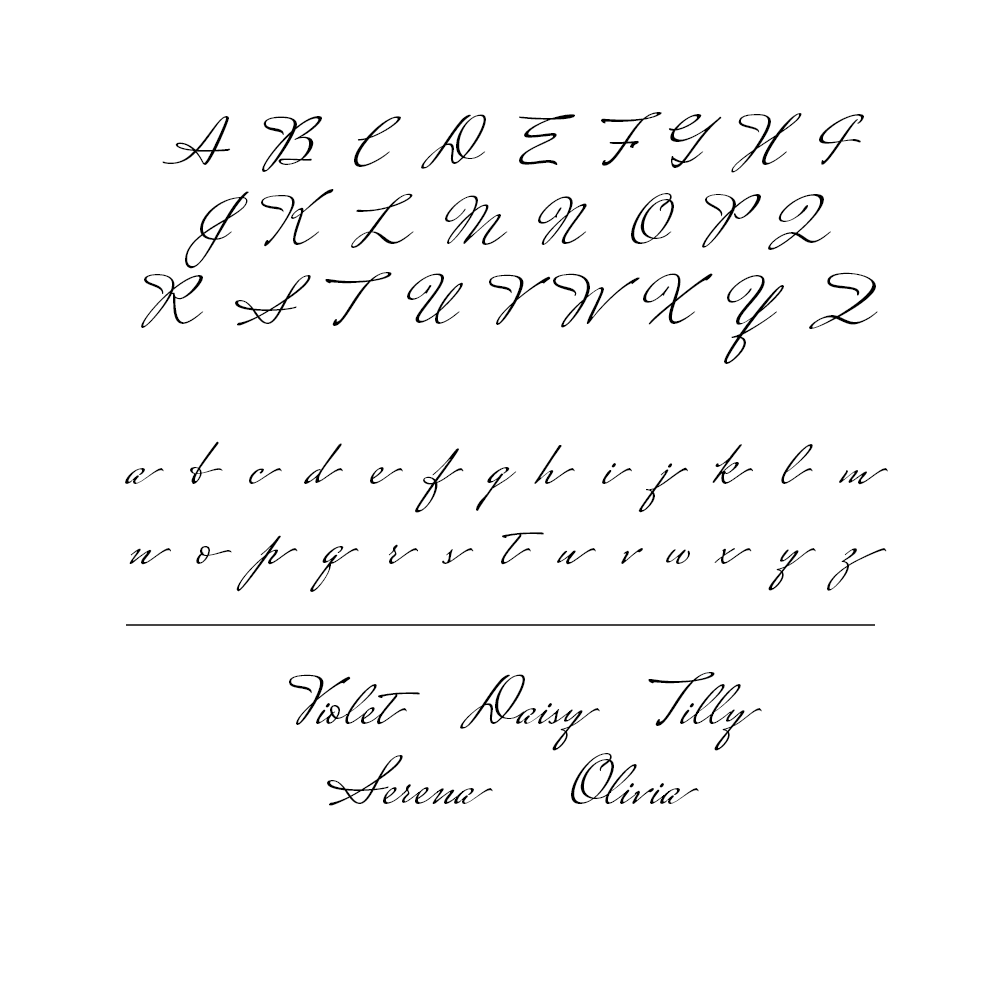 A B C D E F G H I
J K L M N O P Q
R S T U V W X Y Z
a b c d e f g h i j k l m
n o p q r s t u v w x y z
Violet Daisy Tilly
Serena Olivia